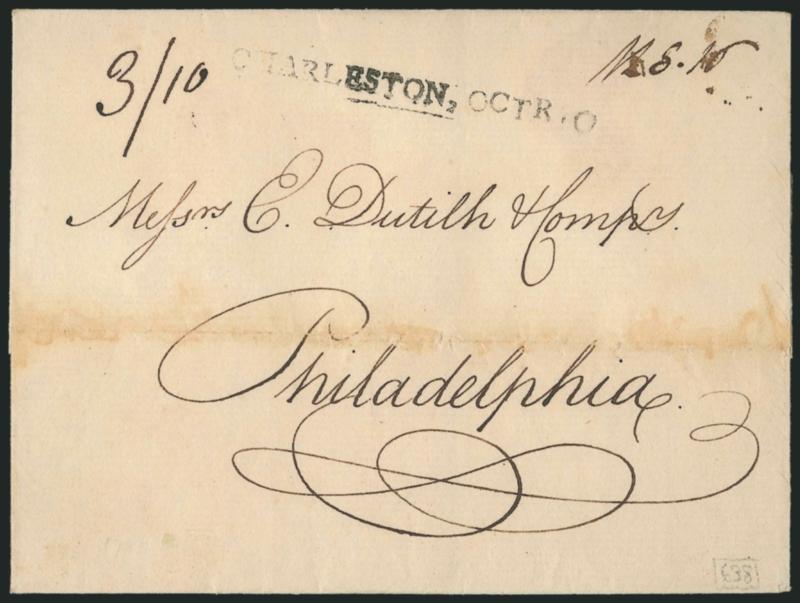 3/10
CHARLESTON, OCTR. O
Messrs E. Dutilh & Comps.
Philadelphia.
638